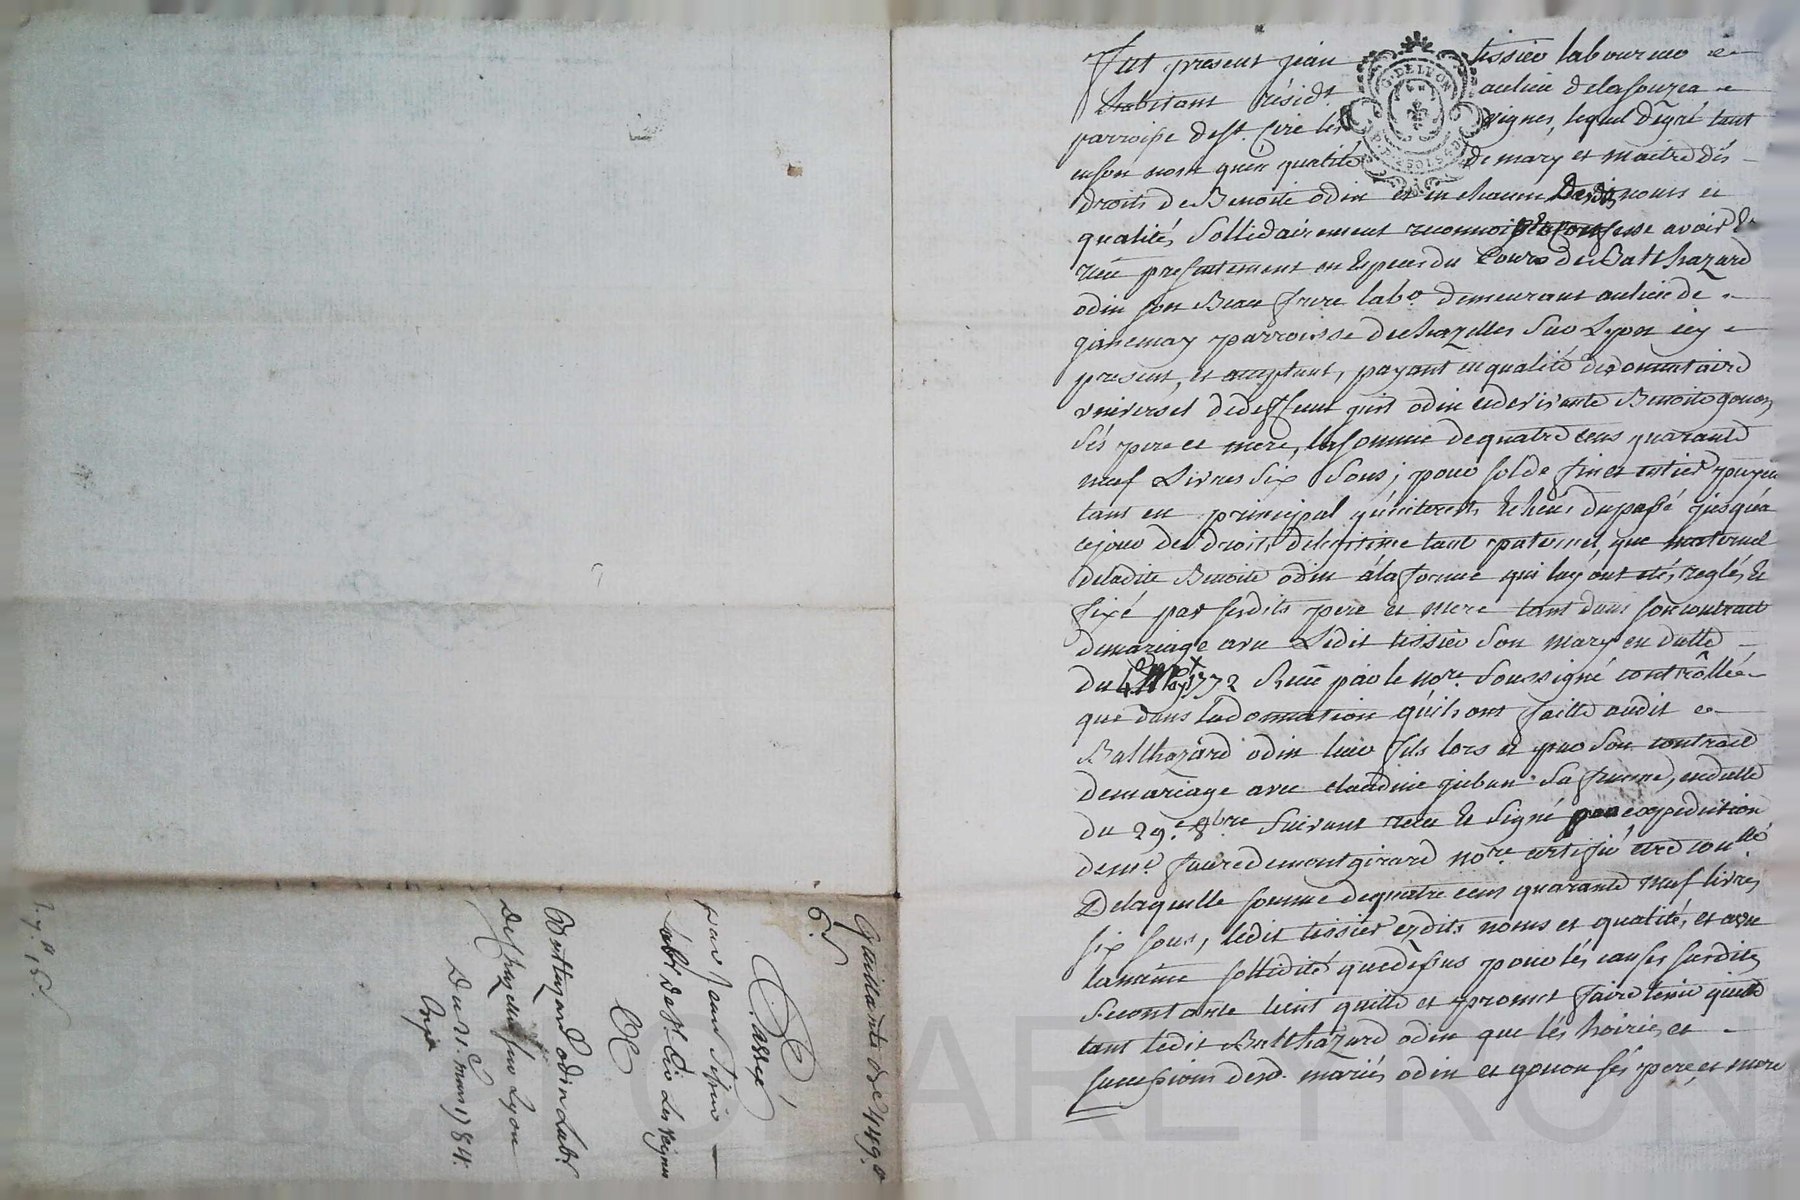 Fut present jean tissier laboureur et
habitant résidt au lieu delafouzea
parroisse de st. Cire les vignes, lequel dégré tant
en son nom qu'en qualité de mary et maitre dés
droits de Benoite odin et en chacun Desdts noms et
qualités Sollidairement reconnoit et confesse avoir
receu presentement en especes du cours de Balthazard
odin son Beau frere labr. demeurant au lieu de
parroisse dechazelles Sur Lyon icy
present, et acceptant, payant en qualité dedonnataire
universel dedeffunt odin et devivante Benoite gonon
sés pere et mere, la somme de quatre cens quarante
neuf Livres Six Sous; pour solde fin et entier payem
tant en principal qu'intérests Echeus dupassé jusqu'a
cejour des droits delegitime tant paternel, que maternel
deladite Benoite odin àla forme qui luy ont etés reglés, et
fixé par sesdits pere et mere tant dans son contract
demariage avec Ledit tissier Son mary en datte
du 1772 Receu par le nore. Soussigné controllée
que dans ladonnation qu'ils ont faitte audit
Balthazard odin leur fils lors et par Son contract
demariage avec claudine Sa femme, en datte
du 29e. 8bre Suivant receu et Signé par expedition
de me. faure demontgirard nore. certifié etre conllé
Delaquelle somme dequatre cens quarante neuf livres
six sous, ledit tissier ezdits noms et qualités, et avec
lamême sollidité quedessus pour lés causes susdites
secontante tient quitte et promet faire tenir quitte
tant ledit Balthazard odin que lés hoiries, et
successions desd. mariés odin et gonon sés pere, et mere
Quittante de 449 lt
6 s.
Passée
par Jean Tissier
labr. de st. Cir Les vignes
A
Balthazard odin Labr.
De chazelles sur Lyon
Du 21e. mars 1784.
Expé